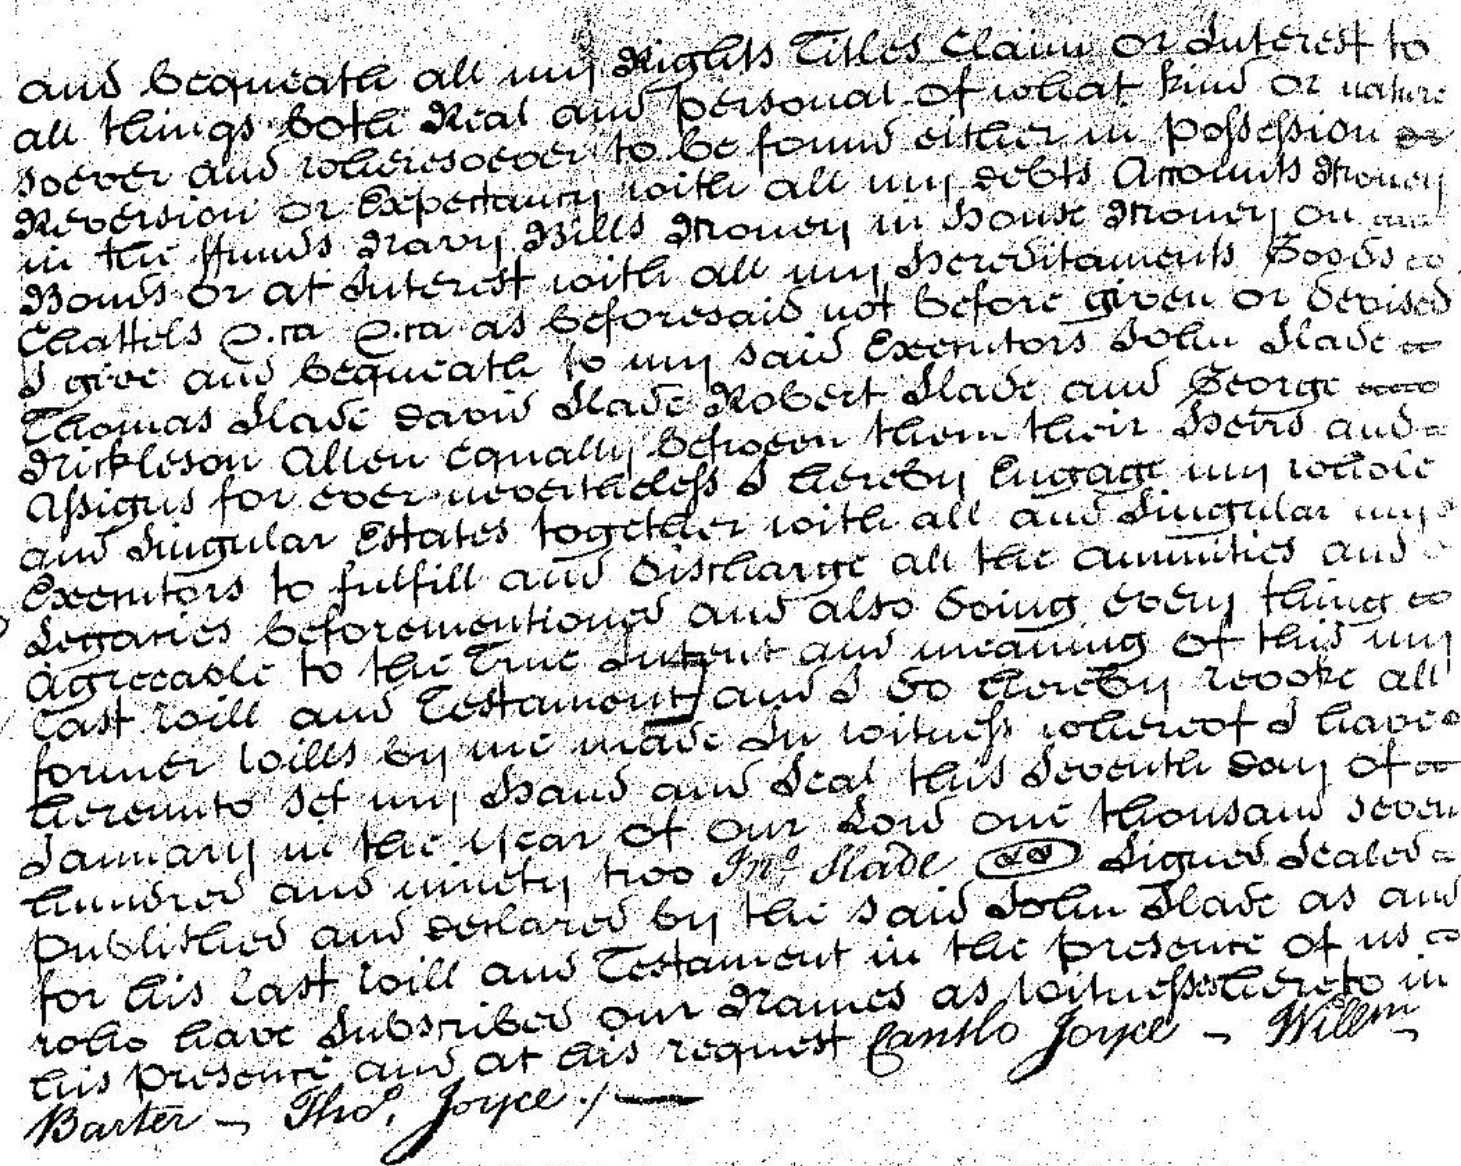 and bequeath all my Rights Titles Claim or Interest to
all things both Real and personal of what kind or nature
soever and wheresoever to be found either in possession or
Reversion or Expectancy with all my debts Accounts Money
in the ffunds Navy Bills Money in House Money on
Bonds or at Interest with all my Hereditaments Goods
Chattels &.ca &.ca as beforesaid not before given or devised
I give and bequeath to my said Executors John Slade
Thomas Slade David Slade Robert Slade and George
Nickleson Allen Equally between them their Heirs and
Assigns for ever nevertheless I hereby Engage my whole
and Singular Estates together with all and Singular my
Executors to fulfill and discharge all the annuities and
Legacies beforementioned and also doing every thing
agreeable to the True Intent and meaning of this my
last will and Testament and I do hereby revoke all
former wills by me made In witness whereof I have
hereunto set my Hand and Seal this Seventh day of
January in the year of our Lord one thousand seven
hundred and ninety two Jno. Slade Signed Sealed
published and declared by the said John Slade as and
for his last will and Testament in the presence of us
who have Subscribed our Names as witnesses thereto in
his presence and at his request Joyce – Willm
Barter – Thos. Joyce ./—